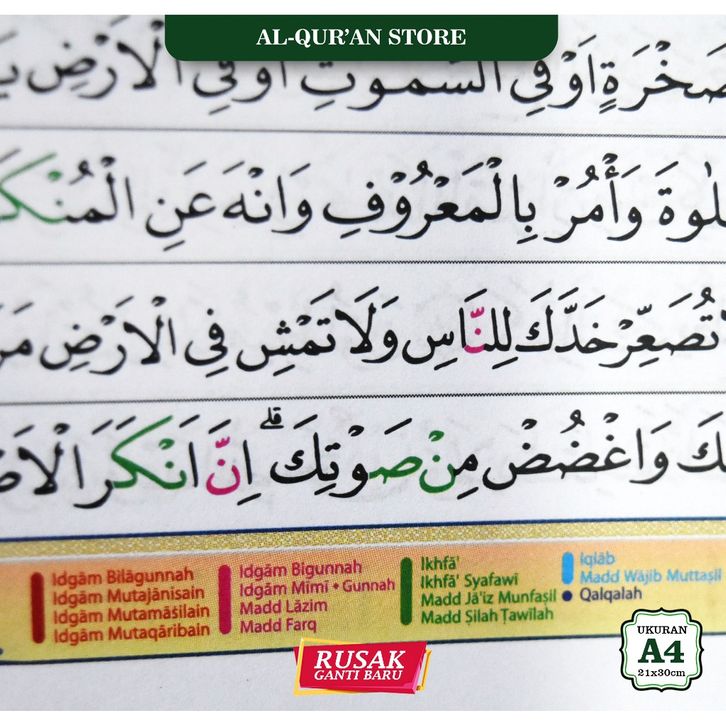 AL-QUR'AN STORE
صَخْرَةٍ اَوْ فِى السَّمٰوٰتِ اَوْ فِى الْاَرْضِ يَـ
ـلٰوةَ وَأْمُرْ بِالْمَعْرُوْفِ وَانْهَ عَنِ الْمُنْكَـ
تُصَعِّرْ خَدَّكَ لِلنَّاسِ وَلَا تَمْشِ فِى الْاَرْضِ مَرَ
ـكَ وَاغْضُضْ مِنْ صَوْتِكَۗ اِنَّ اَنْكَرَ الْاَصـ
Idgām Bilāgunnah
Idgām Mutajānisain
Idgām Mutamāṡilain
Idgām Mutaqāribain
Idgām Bigunnah
Idgām Mīmī • Gunnah
Madd Lāzim
Madd Farq
Ikhfā'
Ikhfā' Syafawī
Madd Jā'iz Munfaṣil
Madd Ṣilah Ṭawīlah
Iqlāb
Madd Wājib Muttaṣil
Qalqalah
RUSAK
GANTI BARU
UKURAN
A4
21x30cm